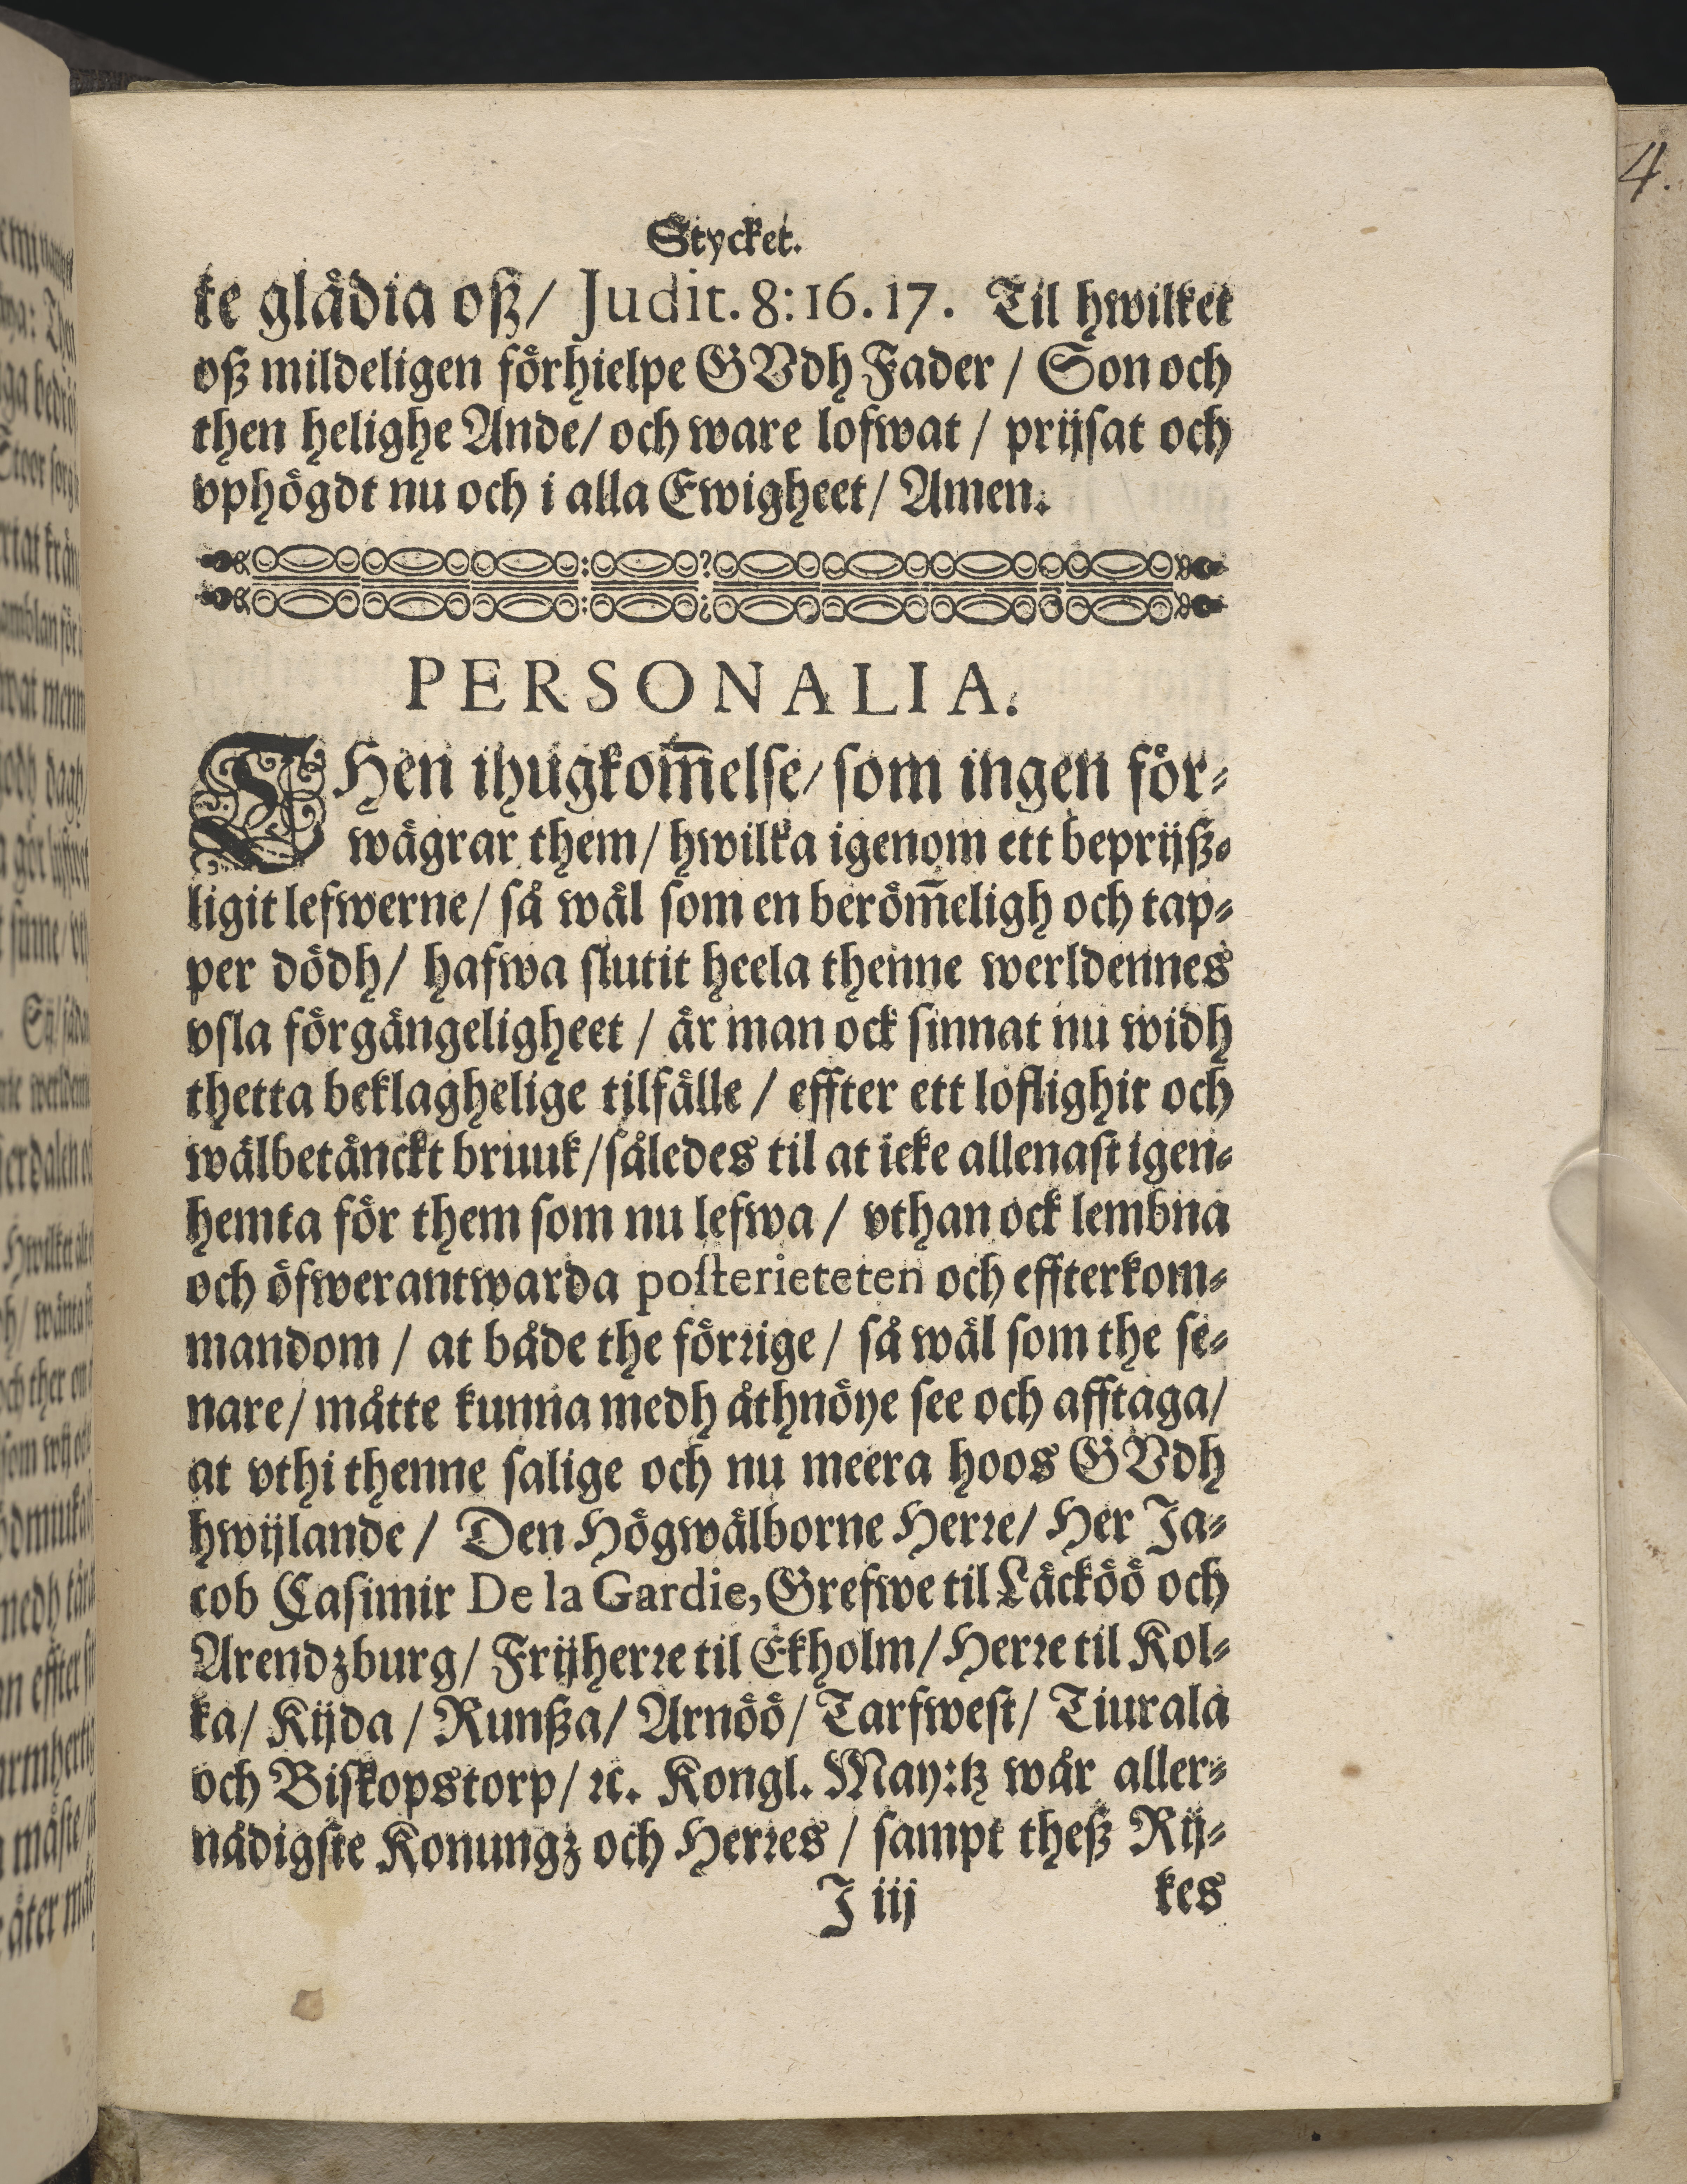 Stycket.
te glädia oß/ Judit. 8:16.17. Til hwilket
oß mildeligen förhielpe GVdh Fader / Son och
then helighe Ande/ och ware lofwat / prijsat och
vphögdt nu och i alla Ewigheet/ Amen.
PERSONALIA.
THen ihugkom̅else/ som ingen för-
wägrar them/ hwilka igenom ett beprijß-
ligit lefwerne/ så wäl som en beröm̅eligh och tap-
per dödh/ hafwa slutit heela thenne werldennes
vsla förgängeligheet / är man ock sinnat nu widh
thetta beklaghelige tilfälle / effter ett loflighit och
wälbetänckt bruuk/således til at icke allenast igen-
hemta för them som nu lefwa / vthan ock lembna
och öfwerantwarda posterieteten och effterkom-
mandom / at både the förrige / så wäl som the se-
nare/ måtte kunna medh åthnöye see och afftaga/
at vthi thenne salige och nu meera hoos GVdh
hwijlande / Den Högwälborne Herre/ Her Ja-
cob Casimir De la Gardie, Grefwe til Läcköö och
Arendzburg/ Frijherre til Ekholm/ Herre til Kol-
ka/ Kijda / Runßa/ Arnöö/ Tarfwest/ Tiurala
och Biskopstorp/ ꝛc. Kongl. May:tz wår aller-
nådigste Konungz och Herres / sampt theß Rij-
J iij kes
4.